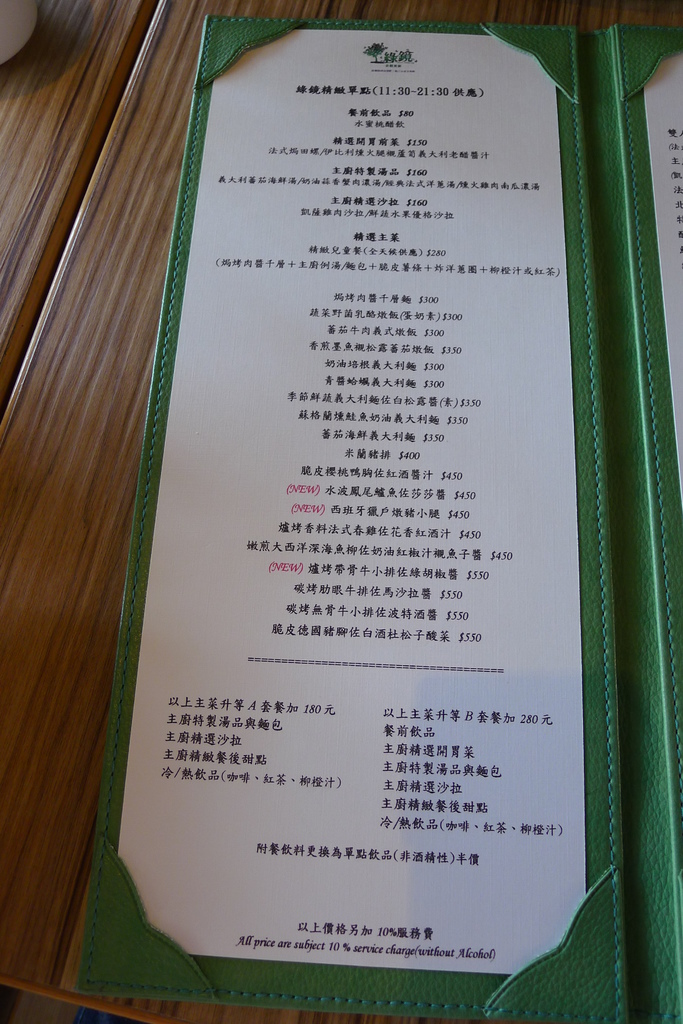 綠鏡
綠鏡精緻單點(11:30~21:30 供應)
餐前飲品 $80
水蜜桃醋飲
精選開胃前菜 $150
法式焗田螺/伊比利燻火腿襯蘆筍義大利老醋醬汁
主廚特製湯品 $160
義大利蕃茄海鮮湯/奶油蒜香蟹肉濃湯/經典法式洋蔥湯/燻火雞肉南瓜濃湯
主廚精選沙拉 $160
凱薩雞肉沙拉/鮮蔬水果優格沙拉
精選主菜
精緻兒童餐(全天候供應) $280
(焗烤肉醬千層＋主廚例湯/麵包＋脆皮薯條＋炸洋蔥圈＋柳橙汁或紅茶)
焗烤肉醬千層麵 $300
蔬菜野菌乳酪燉飯(蛋奶素) $300
蕃茄牛肉義式燉飯 $300
香煎墨魚襯松露蕃茄燉飯 $350
奶油培根義大利麵 $300
青醬蛤蠣義大利麵 $300
季節鮮蔬義大利麵佐白松露醬(素) $350
蘇格蘭燻鮭魚奶油義大利麵 $350
蕃茄海鮮義大利麵 $350
米蘭豬排 $400
脆皮櫻桃鴨胸佐紅酒醬汁 $450
(NEW) 水波鳳尾鱸魚佐莎莎醬 $450
(NEW) 西班牙獵戶燉豬小腿 $450
爐烤香料法式春雞佐花香紅酒汁 $450
嫩煎大西洋深海魚柳佐奶油紅椒汁襯魚子醬 $450
(NEW) 爐烤帶骨牛小排佐綠胡椒醬 $550
碳烤肋眼牛排佐馬沙拉醬 $550
碳烤無骨牛小排佐波特酒醬 $550
脆皮德國豬腳佐白酒杜松子酸菜 $550
======================================
以上主菜升等 A 套餐加 180 元
主廚特製湯品與麵包
主廚精選沙拉
主廚精緻餐後甜點
冷/熱飲品(咖啡、紅茶、柳橙汁)
以上主菜升等 B 套餐加 280 元
餐前飲品
主廚精選開胃菜
主廚特製湯品與麵包
主廚精選沙拉
主廚精緻餐後甜點
冷/熱飲品(咖啡、紅茶、柳橙汁)
附餐飲料更換為單點飲品(非酒精性)半價
以上價格另加 10%服務費
All price are subject 10 % service charge(without Alcohol)